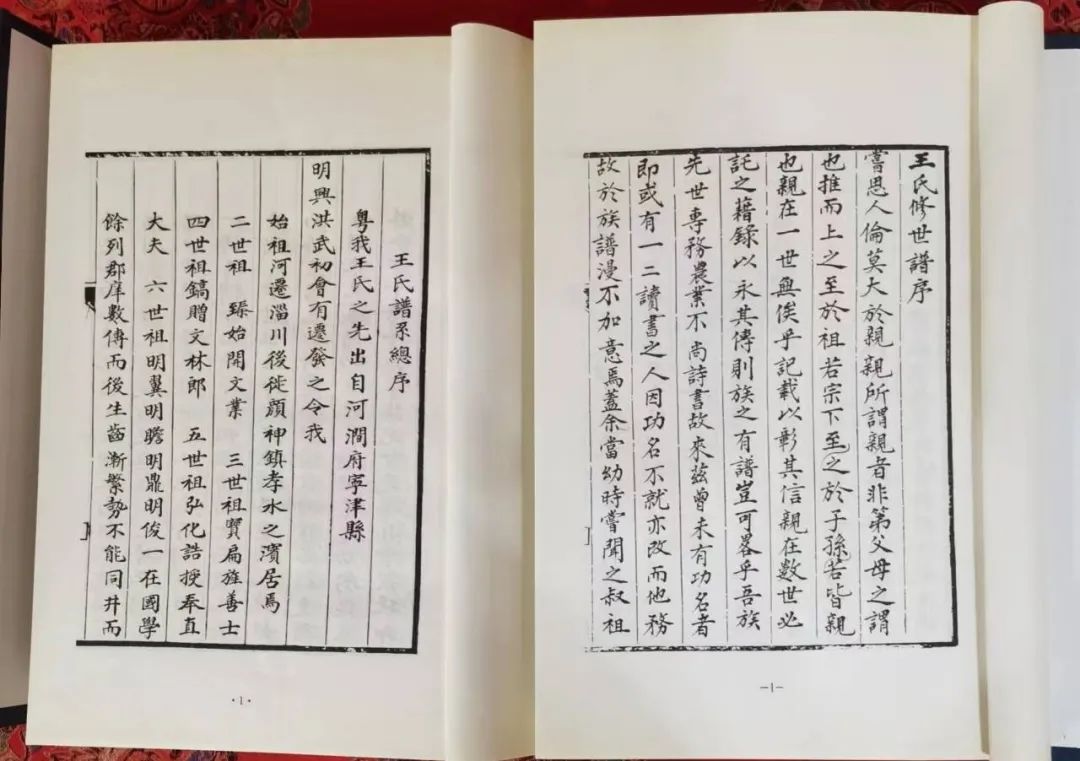 王氏修世譜序
嘗思人倫莫大於親親所謂親者非第父母之謂
也推而上之至於祖若宗下至之於子孫若皆親
也親在一世無俟乎記載以彰其信親在數世必
託之藉錄以永其傳則族之有譜豈可畧乎吾族
先世專務農業不尚詩書故來茲曾未有功名者
即或有一二讀書之人因功名不就亦改而他務
故於族譜漫不加意焉蓋余當幼時嘗聞之叔祖
—1—
王氏譜系總序
粵我王氏之先出自河澗府寧津縣
明興洪武初會有遷發之令我
始祖河遷淄川後徙顔神鎮孝水之濱居焉
二世祖 臻始開文業 三世祖賢扁旌善士
四世祖鎬贈文林郎 五世祖弘化誥授奉直
大夫 六世祖明翼明瞻明鼎明俊一在國學
餘列郡庠數傳而後生齒漸繁勢不能同井而
·1·